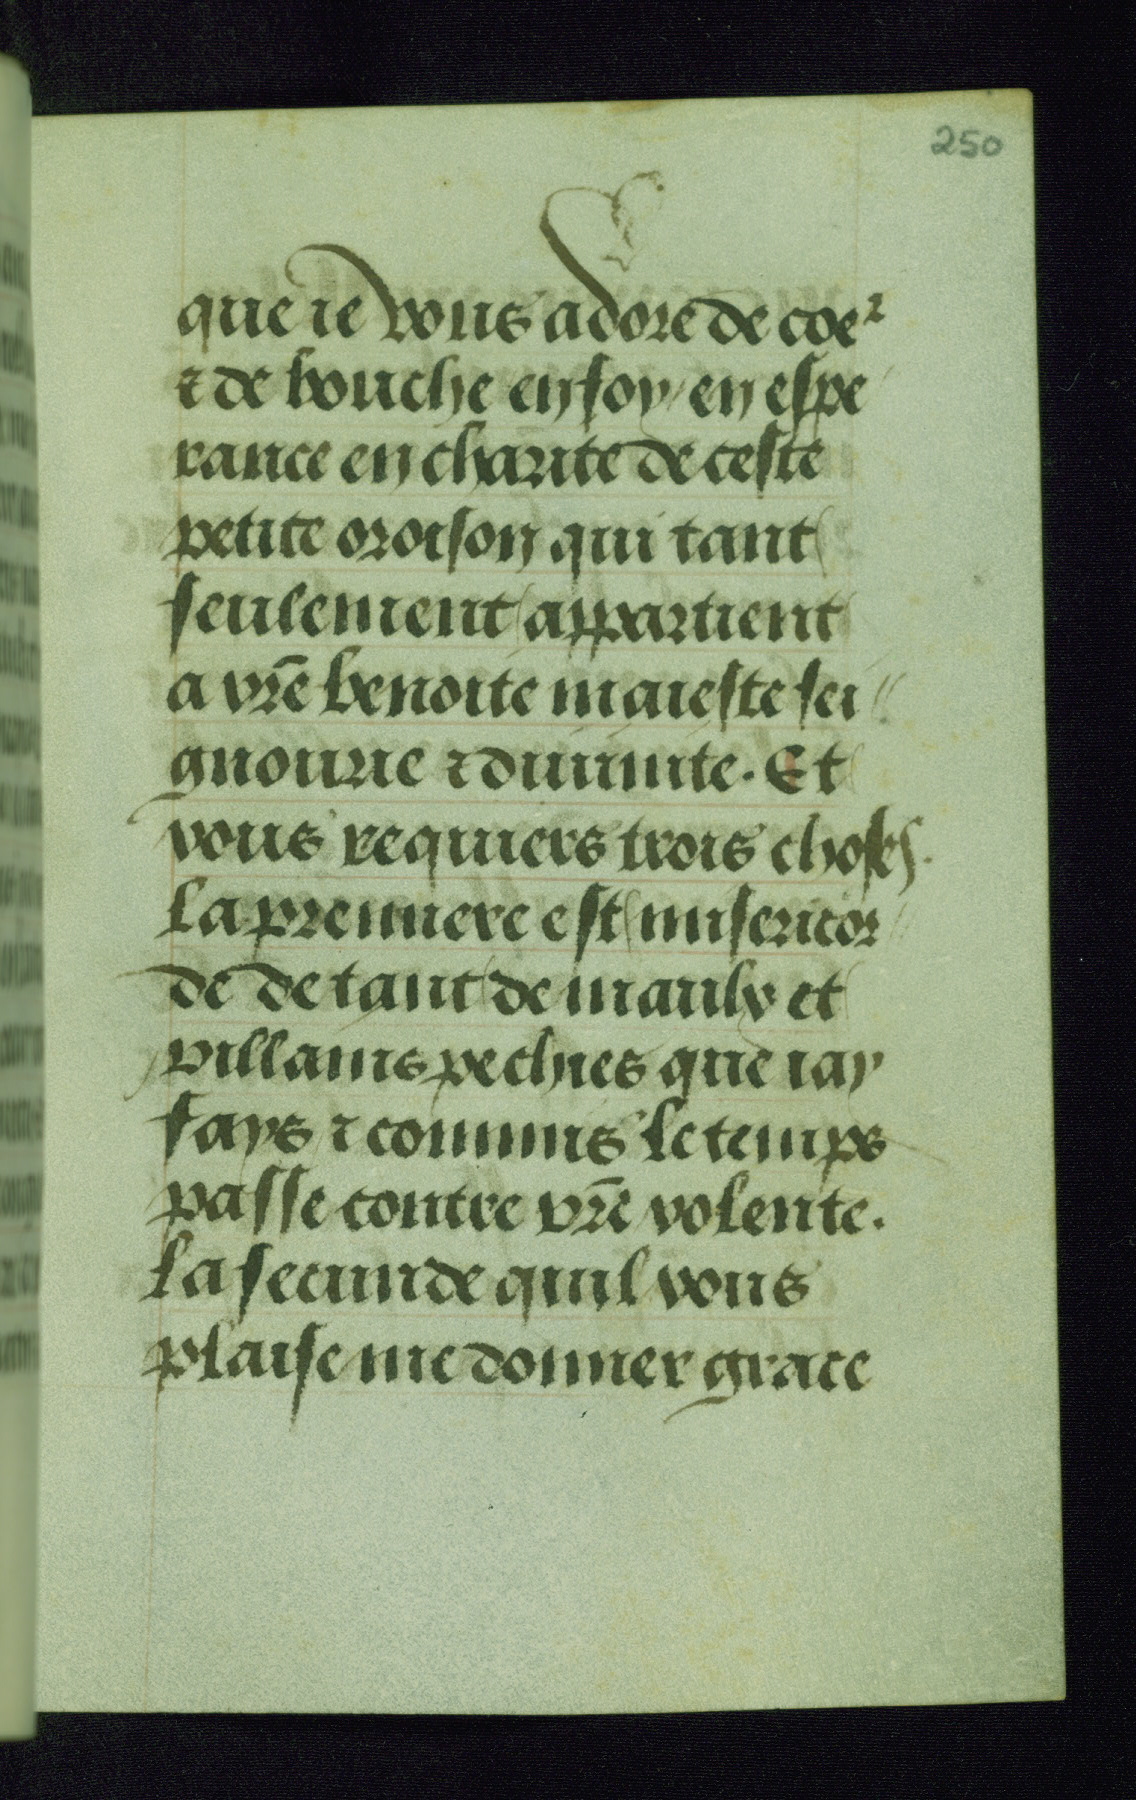 250
que ie vous adore de coeꝛ
⁊ de bouche en foy en espe
rance en charite de ceste
petite oroison qui tant
seulement appartient
a vr̄e benoite maieste sei
gnourie ⁊ diuinite. Et
vous requiers trois choses.
La premiere est misericor
de de tant de maulx et
villains pechies que iay
fays ⁊ commis le temps
passe contre vr̄e volente.
La secunde quil vous
plaise me donner grace